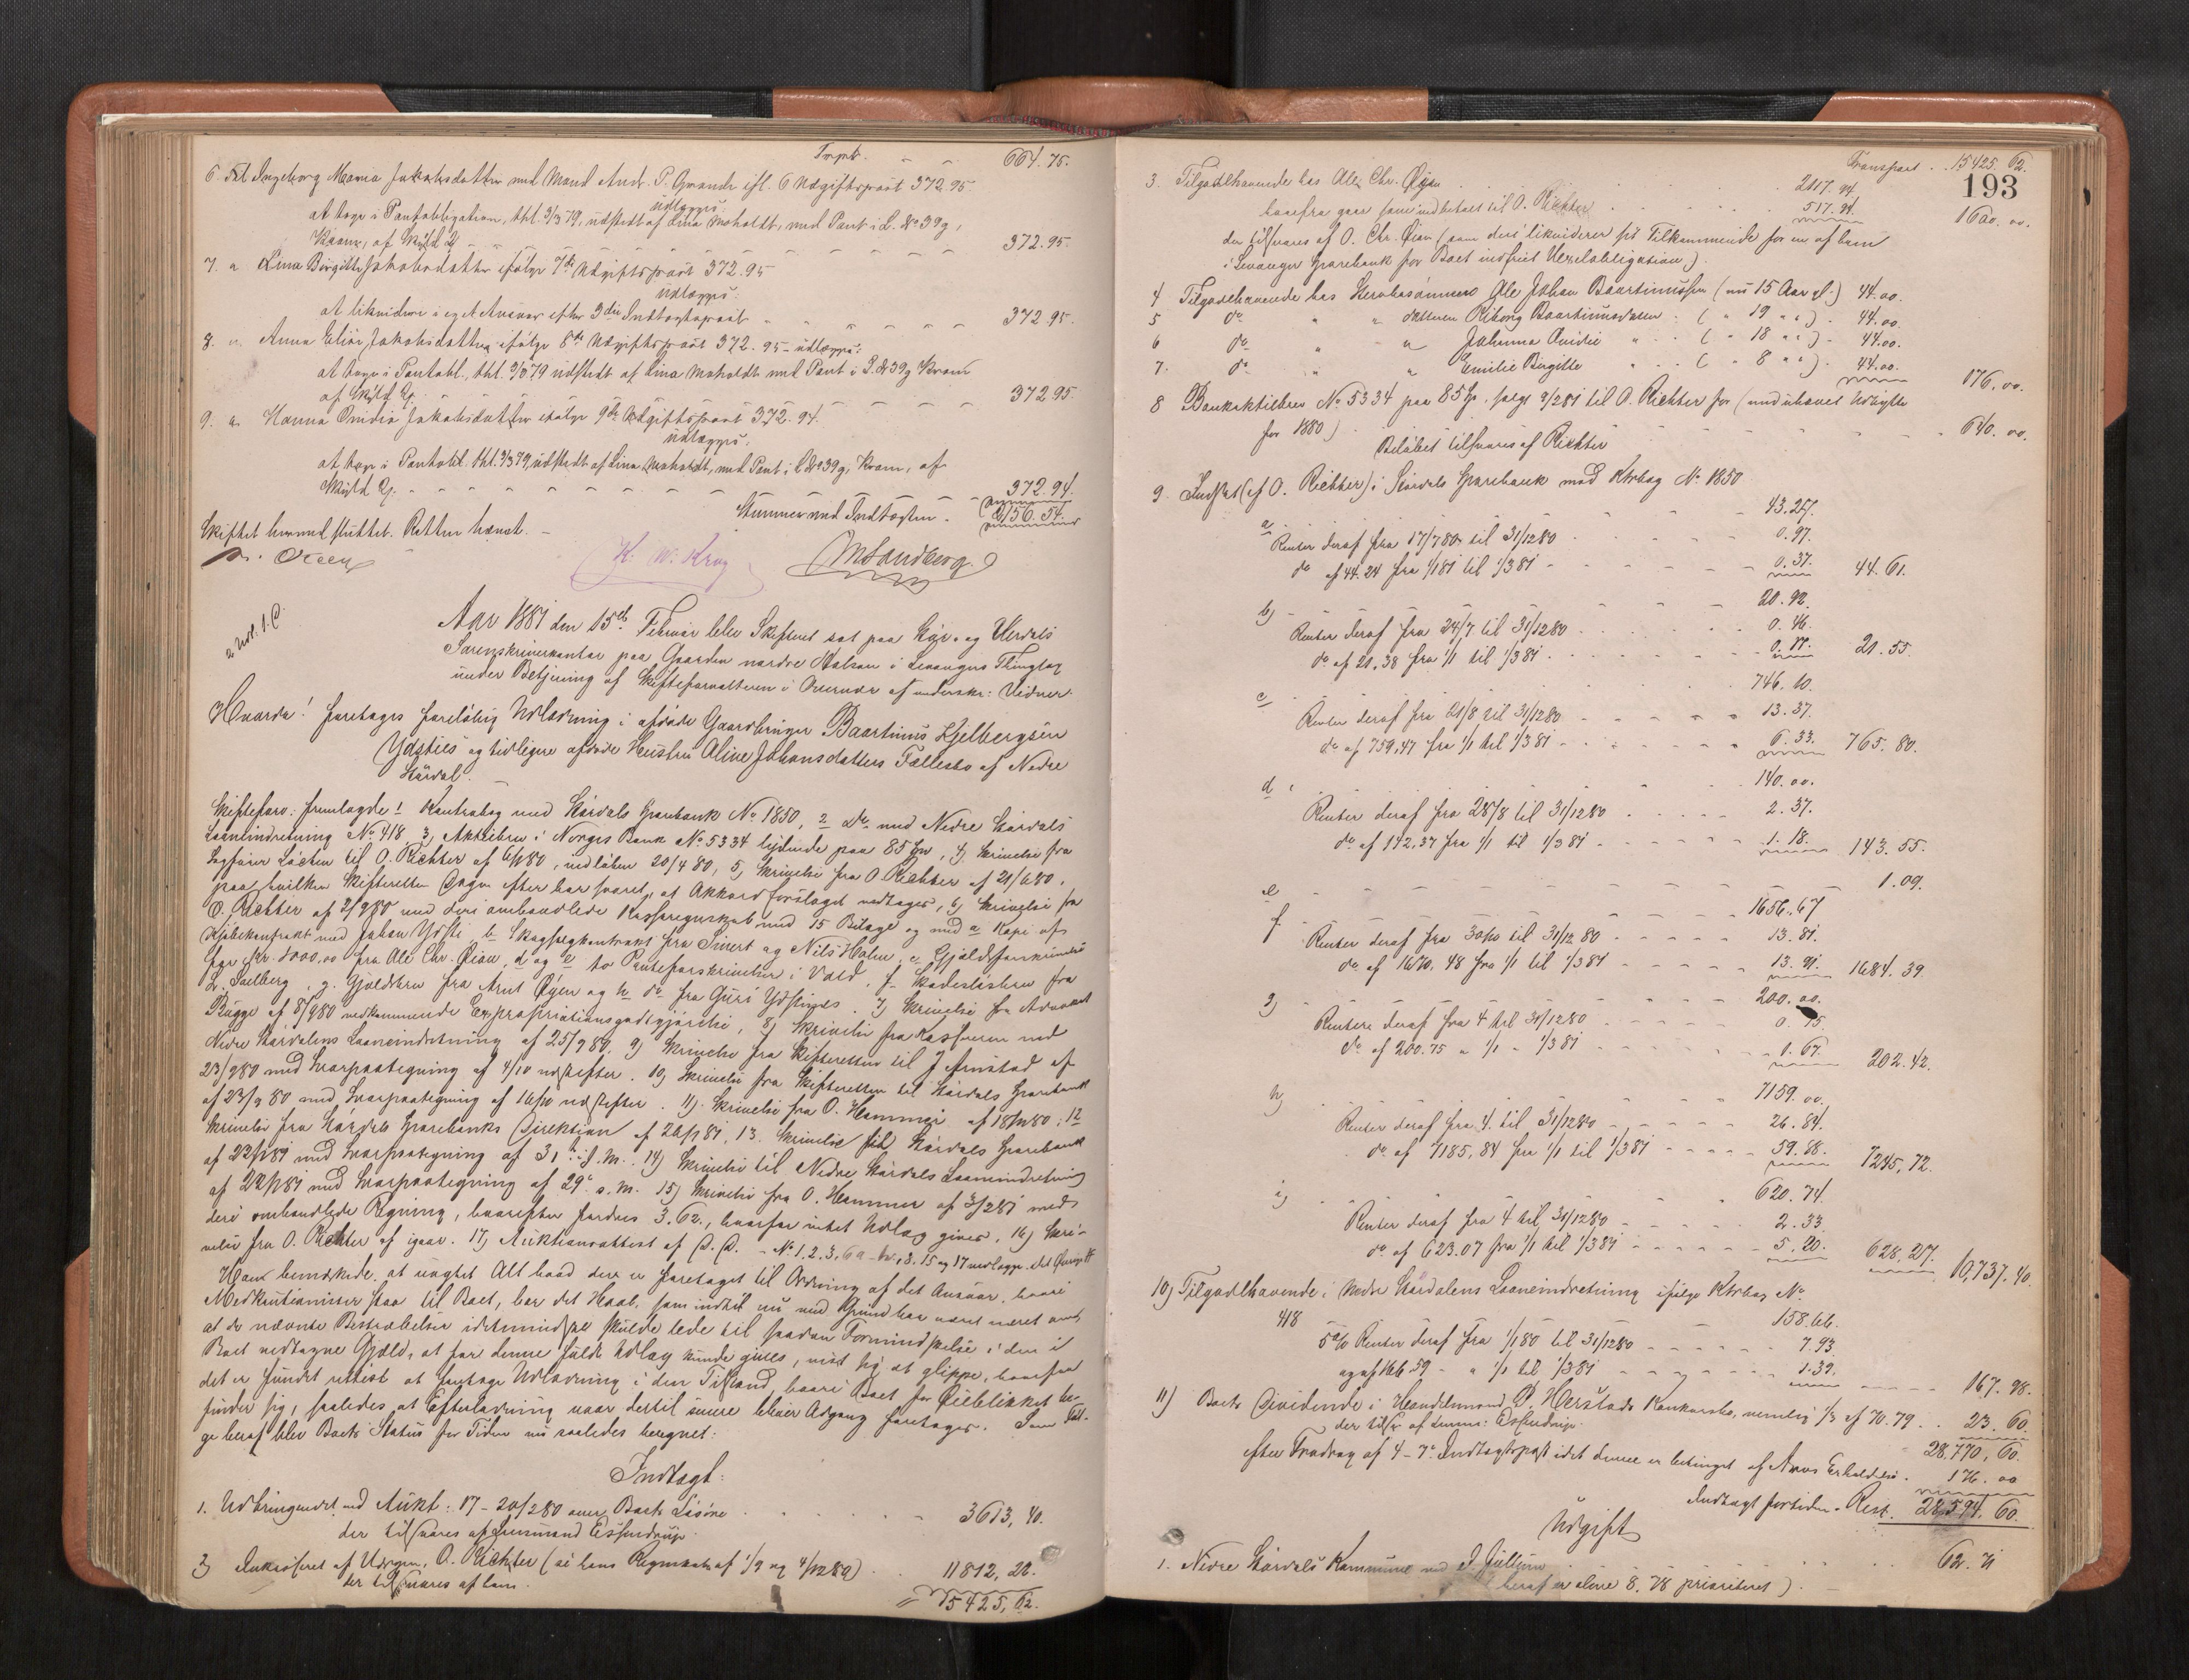 Trspt. - - 664.75.
6. Til Ingeborg Maria Jakobsdatter med Mand Andr. P. Grande ifl. 6 Udgiftspost 372.95.
udlægges:
at tage i Pantobligation, thl. 3/3 79, udstedt af Lina Moholdt, med Pant i L. No 39g,
Kram, af Skyld 2 - - - 372.95.
7. " Lina Birgitte Jakobsdatter ifølge 7de Udgiftspost 372.95
udlægges:
at likvidere i eget Ansvar efter 3die Indtægtspost - - - 372.95.
8. " Anna Elise Jakobsdatter ifølge 8de Udgiftspost 372.95 - udlægges:
at tage i Pantobl., thl. 3/3 79 udstedt af Lina Moholdt med Pant i L. No 39g Kram
af Skyld - - - 372.95
9. " Hanna Ovidia Jakobsdatter ifølge 9de Udgiftspost 372.94.
udlægges:
at tage i Pantobl. thl. 3/3 79, udstedt af Lina Moholdt, med Pant i L. No 39g, Kram, af
Skyld - - - 372.94.
Stemmer med Indtægten - 6156.54.
Skiftet hermed sluttet. Retten hævet. -
H. W. Krog M Sandberg.
Aar 1881 den 15de Februar blev Skifteret sat paa Stjør- og Værdals
Sorenskriverkontor paa Gaarden nordre Halsan i Levangers Thinglag
under Betjening af Skifteforvalteren i Overvær af underskr: Vidner.
Hvorda! foretages foreløbig Udlodning i afdøde Gaardbruger Baartinus Kjelbergsen
Ydsties og tidligere afdøde Hustru Aline Johansdatters Fællesbo af Nedre
Stjørdal.
Skifteforv. fremlagde: 1 Kontrabog med Stjørdals Sparebank No 1850, 2 Do. med Nedre Stjørdals
Laaneindretning No 418 3, Aktiebrev i Norges Bank No 5334 lydende paa 85 Spd, 4, Skrivelse fra
Sagfører Løchen til O. Richter af 80, indløben 20/4 80, 5, Skrivelse fra O Richter af 21/6 80,
paa hvilken Skifteretten Dagen efter har svaret, at Akkordforslaget vedtages, 6, Skrivelse fra
O. Richter af 2/9 80 med deri ombandlede Kasseregnskab med 15 Bilage og med a Kopi af
Kjøbekontrakt med Johan Ydsti, b Skogsalgkontrakt fra Sivert og Nils Holm, c Gjældserkjendelse
for Kr. 1000,00 fra Ole Chr. Øian, d og e to Panteforskrivelser i Vold, f. Skadesløsbrev fra
L. Salberg, g. Gjældsbrev fra Arnt Øyen og h do fra Guri Ydstines. 7, Skrivelse fra Advokat
Bugge af 8/9 80 vedkommende Expropriationsgodtgjørelse, 8, Skrivelse fra Kassereren ved
Nedre Stjørdalens Laaneindretning af 25/9 80, 9, Skrivelse fra Skifteretten til J Arnstad af
23/9 80 med Svarpaategning af 4/10 nestefter. 10, Skrivelse fra Skifteretten til Stjørdals Sparebank
af 23/9 80 med Svarpaategning af 16/10 nestefter. 11, Skrivelse fra O. Hammer af 18/11 80; 12
Skrivelse fra Stjørdals Sparebanks Direktion af 26/1 81, 13. Skrivelse til Stjørdals Sparebank
af 22/1 81 med Svarpaategning af 31. s. M. 14, Skrivelse til Nedre Stjørdals Laaneindretning
af 22/1 81 med Svarpaategning af 29. s. M. 15, Skrivelse fra O. Hammer af 3/2 81 med
deri ombandlede Regning, hvorefter fordres 3.62., hvorfor intet Udlæg gives, 16, Skri-
velse fra O. Richter af igaar. 17, Auktionsattest af D. D. - No 1. 2. 3. 6 a - h, 8. 15 og 17 vedlægges.
Han bemærkede, at uagtet Alt hvad der er foretaget til Ordning af det Ansvar, hvori
Medkautionister staa til Boet, har det Haab, som indtil nu med Grund har været næret om,
at de nævnte Bestræbelser idetmindste skulde lede til saadan Formindskelse i den i
Boet vedtagne Gjæld, at for denne fuldt Udlæg kunde gives, vist sig at glippe, hvorfor
det er fundet rettest at foretage Udlodning i den Tilstand hvori Boet for Øieblikket be-
finder sig, saaledes at Efterlodning naar dertil senere bliver Adgang foretages. Som Føl-
ge heraf blev Boets Status for Tiden nu saaledes beregnet:
Indtægt:
1. Udbringendet ved Aukt: 17-20/2 80 over Boets Løsøre - - 3613,40.
der tilsvares af Lensmand Essendrop.
2, Inkasseret af Udregn. O. Richter (se hans Regnskab af 1/9 og 4/12 80) . . 11812,22.
der tilsvares af ham.
15425,62.
193
Transport . 15425.62.
3. Tilgodehavende hos Ole Chr. Øyan . . . 2117.94.
hvorfra gaar som indbetalt til O. Richter . . . 517.94. 1600.00.
der tilsvares af O. Chr. Øian (som deri likviderer sit Tilkommende for en af ham
i Levanger Sparebank for Boet indfriet Vexelobligation).
4 Tilgodehavende hos Stervbosønnen Ole Johan Baartinussen (nu 15 Aar gl.) 44.00.
5 do " " Datteren Riborg Baartinusdatter . ( " 19 " " ) . 44.00.
6 do " " Johanna Ovidie " . . ( " 18 " " ) . 44.00.
7. do " " Emilie Birgitte " . . ( " 8 " " ) . 44.00. 176.00.
8 Bankaktiebrev No 5334 paa 85 Sp. solgt 9/2 81 til O. Richter for (med uhævet Udbytte
for 1880) . . . 640.00.
Beløbet tilsvares af Richter
9. Indsat (af O. Richter) i Stjørdals Sparebank mod Ktrbog No 1850
a . . . 43.27.
Renter deraf fra 17/7 80 til 31/12 80 . . . 0.97.
do af 44.24 fra 1/1 81 til 1/3 81 - - - 0.37. 44.61.
b, - - - 20.92.
Renter deraf fra 24/7 til 31/12 80 . . . 0.46.
do af 21.38 fra 1/1 til 1/3 81 . . . 0.17. 21.55.
c . . . 746.10.
Renter deraf fra 21/8 til 31/12 80 - - - 13.37.
do af 759,47 fra 1/1 til 1/3 81 - - - 6.33. 765.80.
d . . . 140.00.
Renter deraf fra 28/8 til 31/12 80 . . . 2.37.
do af 142,37 fra 1/1 til 1/3 81 - - - 1.18. 143.55.
e - - - 1.09.
f - - - 1656.67
Renter deraf fra 30/10 til 31/12 80 - - - 13.81.
do af 1670,48 fra 1/1 til 1/3 81 - - - 13.91. 1684.39.
g, - - - 200.00.
Rentere deraf fra 4 til 31/12 80 . . . 0.75.
do af 200.75 " 1/1 " 1/3 81 - - - 1.67. 202.42.
h, - - - 7159.00.
Renter deraf fra 4. til 31/12 80 - - - 26.84.
do af 7185,84 fra 1/1 til 1/3 81 - - - 59.88. 7245,72.
i, - - - 620.74.
Renter deraf fra 4 til 31/12 80 - - - 2.33.
do af 623.07 fra 1/1 til 1/3 81 - - - 5.20. 628.27. 10,737.40.
10, Tilgodehavende i Nedre Stjørdalens Laaneindretning ifølge Ktrbog No
418 158.66.
5% Renter deraf fra 1/1 80 til 31/12 80 - - - 7.93.
og af 166.59 - " 1/1 til 1/3 81 - - - 1.39. - - - 167.98.
11) Boets Dividende i Handelsmand P. Herstads Konkursbo, nemlig 1/3 af 70.79 . . 23.60.
der tilsv. af Lensm: Essendrop. 28.770,60.
efter Fradrag af 4-7de Indtægtspost idet denne er betinget af Arvs Erholdelse . 176.00
Indtægt fortiden - Rest. 28,594.60.
Udgift
1. Nedre Stjørdals Kommune ved J. Jullum . . . 62.71
(heraf er alene 8.78 prioriteret).